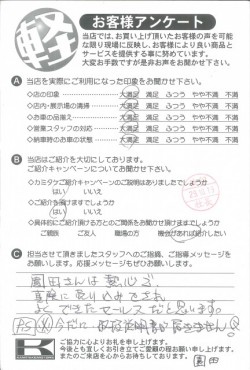 軽
お客様アンケート
当店では、お買い上げ頂いたお客様の声を可能
な限り現場に反映し、お客様により良い商品と
サービスを提供する事に努めています。
大変お手数ですが是非お声をお聞かせ下さい。
A 当店を実際にご利用になった印象をお聞かせ下さい。
◇店の印象 大満足 満足 ふつう やや不満 不満
◇店内・展示場の清掃 大満足 満足 ふつう やや不満 不満
◇お車の品揃え 大満足 満足 ふつう やや不満 不満
◇営業スタッフの対応 大満足 満足 ふつう やや不満 不満
◇納車時のお車の状態 大満足 満足 ふつう やや不満 不満
B 当店はご紹介を大切にしております。
ご紹介キャンペーンについてお聞かせ下さい。
◇カミタケご紹介キャンペーンのご説明はありましたでしょうか
はい いいえ
◇ご紹介を頂けますでしょうか
はい いいえ
◇具体的にご紹介頂ける方とのご関係をお聞かせ頂けますでしょうか
ご親族 ご友人 職場の方 機会があれば紹介したい
C 担当させて頂きましたスタッフへのご指摘、ご指導メッセージを
お願いします。応援メッセージもぜひお願いします。
岡田さんは熱心で
親身に売り込みできれ
よくできたセールスだと思います。
PS
今だに
届きません
K
ご協力に心よりお礼を申し上げます。
今後とも宜しくお引き立てご愛顧の程お願い申し上げます。
またのご来店を心からお待ちしております。